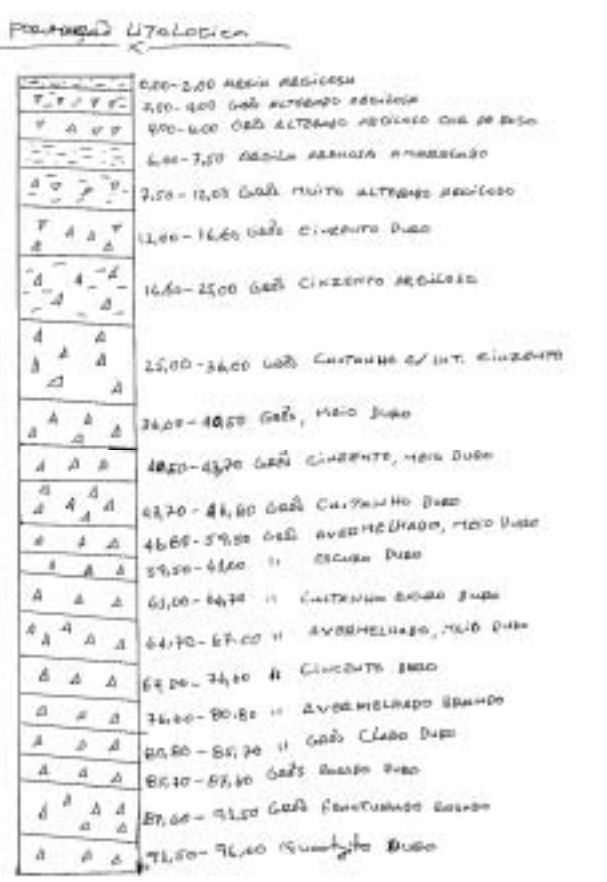 Formação Litologica
0,00-2,00 Argila Arenosa
2,00-4,00 Grés Alterado Argiloso
4,00-6,00 Grés Alterado Argiloso Cor de Rosa
6,00-7,50 Argila Arenosa Amarelado
7,50-12,00 Grés Muito Alterado Argiloso
12,00-16,60 Grés Cinzento Duro
16,60-25,00 Grés Cinzento Argiloso
25,00-36,00 Grés Castanho c/ Int. Cinzento
36,00-40,50 Grés, Meio Duro
40,50-43,70 Grés Cinzento, Meio Duro
43,70-46,60 Grés Castanho Duro
46,60-59,50 Grés Avermelhado, Meio Duro
59,50-61,00 " Escuro Duro
61,00-64,70 " Castanho Escuro Duro
64,70-67,00 " Avermelhado, Meio Duro
67,00-76,60 " Cinzento Duro
76,60-80,80 " Avermelhado Brando
80,80-85,70 " Grés Claro Duro
85,70-87,60 Grés Rosado Duro
87,60-91,50 Grés Fracturado Rosado
91,50-96,00 Quartzito Duro